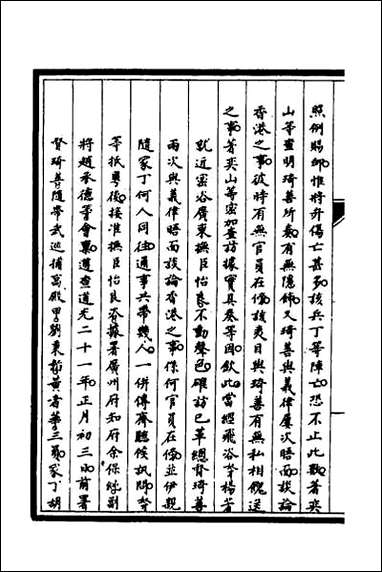 照例賜卹惟將弁傷亡甚多該兵丁等陣亡恐不止此數著奕
山等查明琦善所奏有無隱飾又琦善與義律屢次晤面談論
香港之事彼時有無官員在傍該夷目與琦善有無私相餽送
之事著奕山等密加查訪據實具奏等因欽此當經飛咨參楊省
就近密咨廣東撫臣怡良不動聲色確訪已革總督琦善
兩次與義律晤面談論香港之事係何官員在傍並伊親
隨家丁何人同往通事共帶幾人一併傳齊聽候訊問等
等抵粵後接准撫臣怡良咨據署廣州府知府余保純副
將趙承德等會稟遵查道光二十一年正月初三日前署
督琦善隨帶武巡捕萬殿甲劉東黃者華三員家丁胡